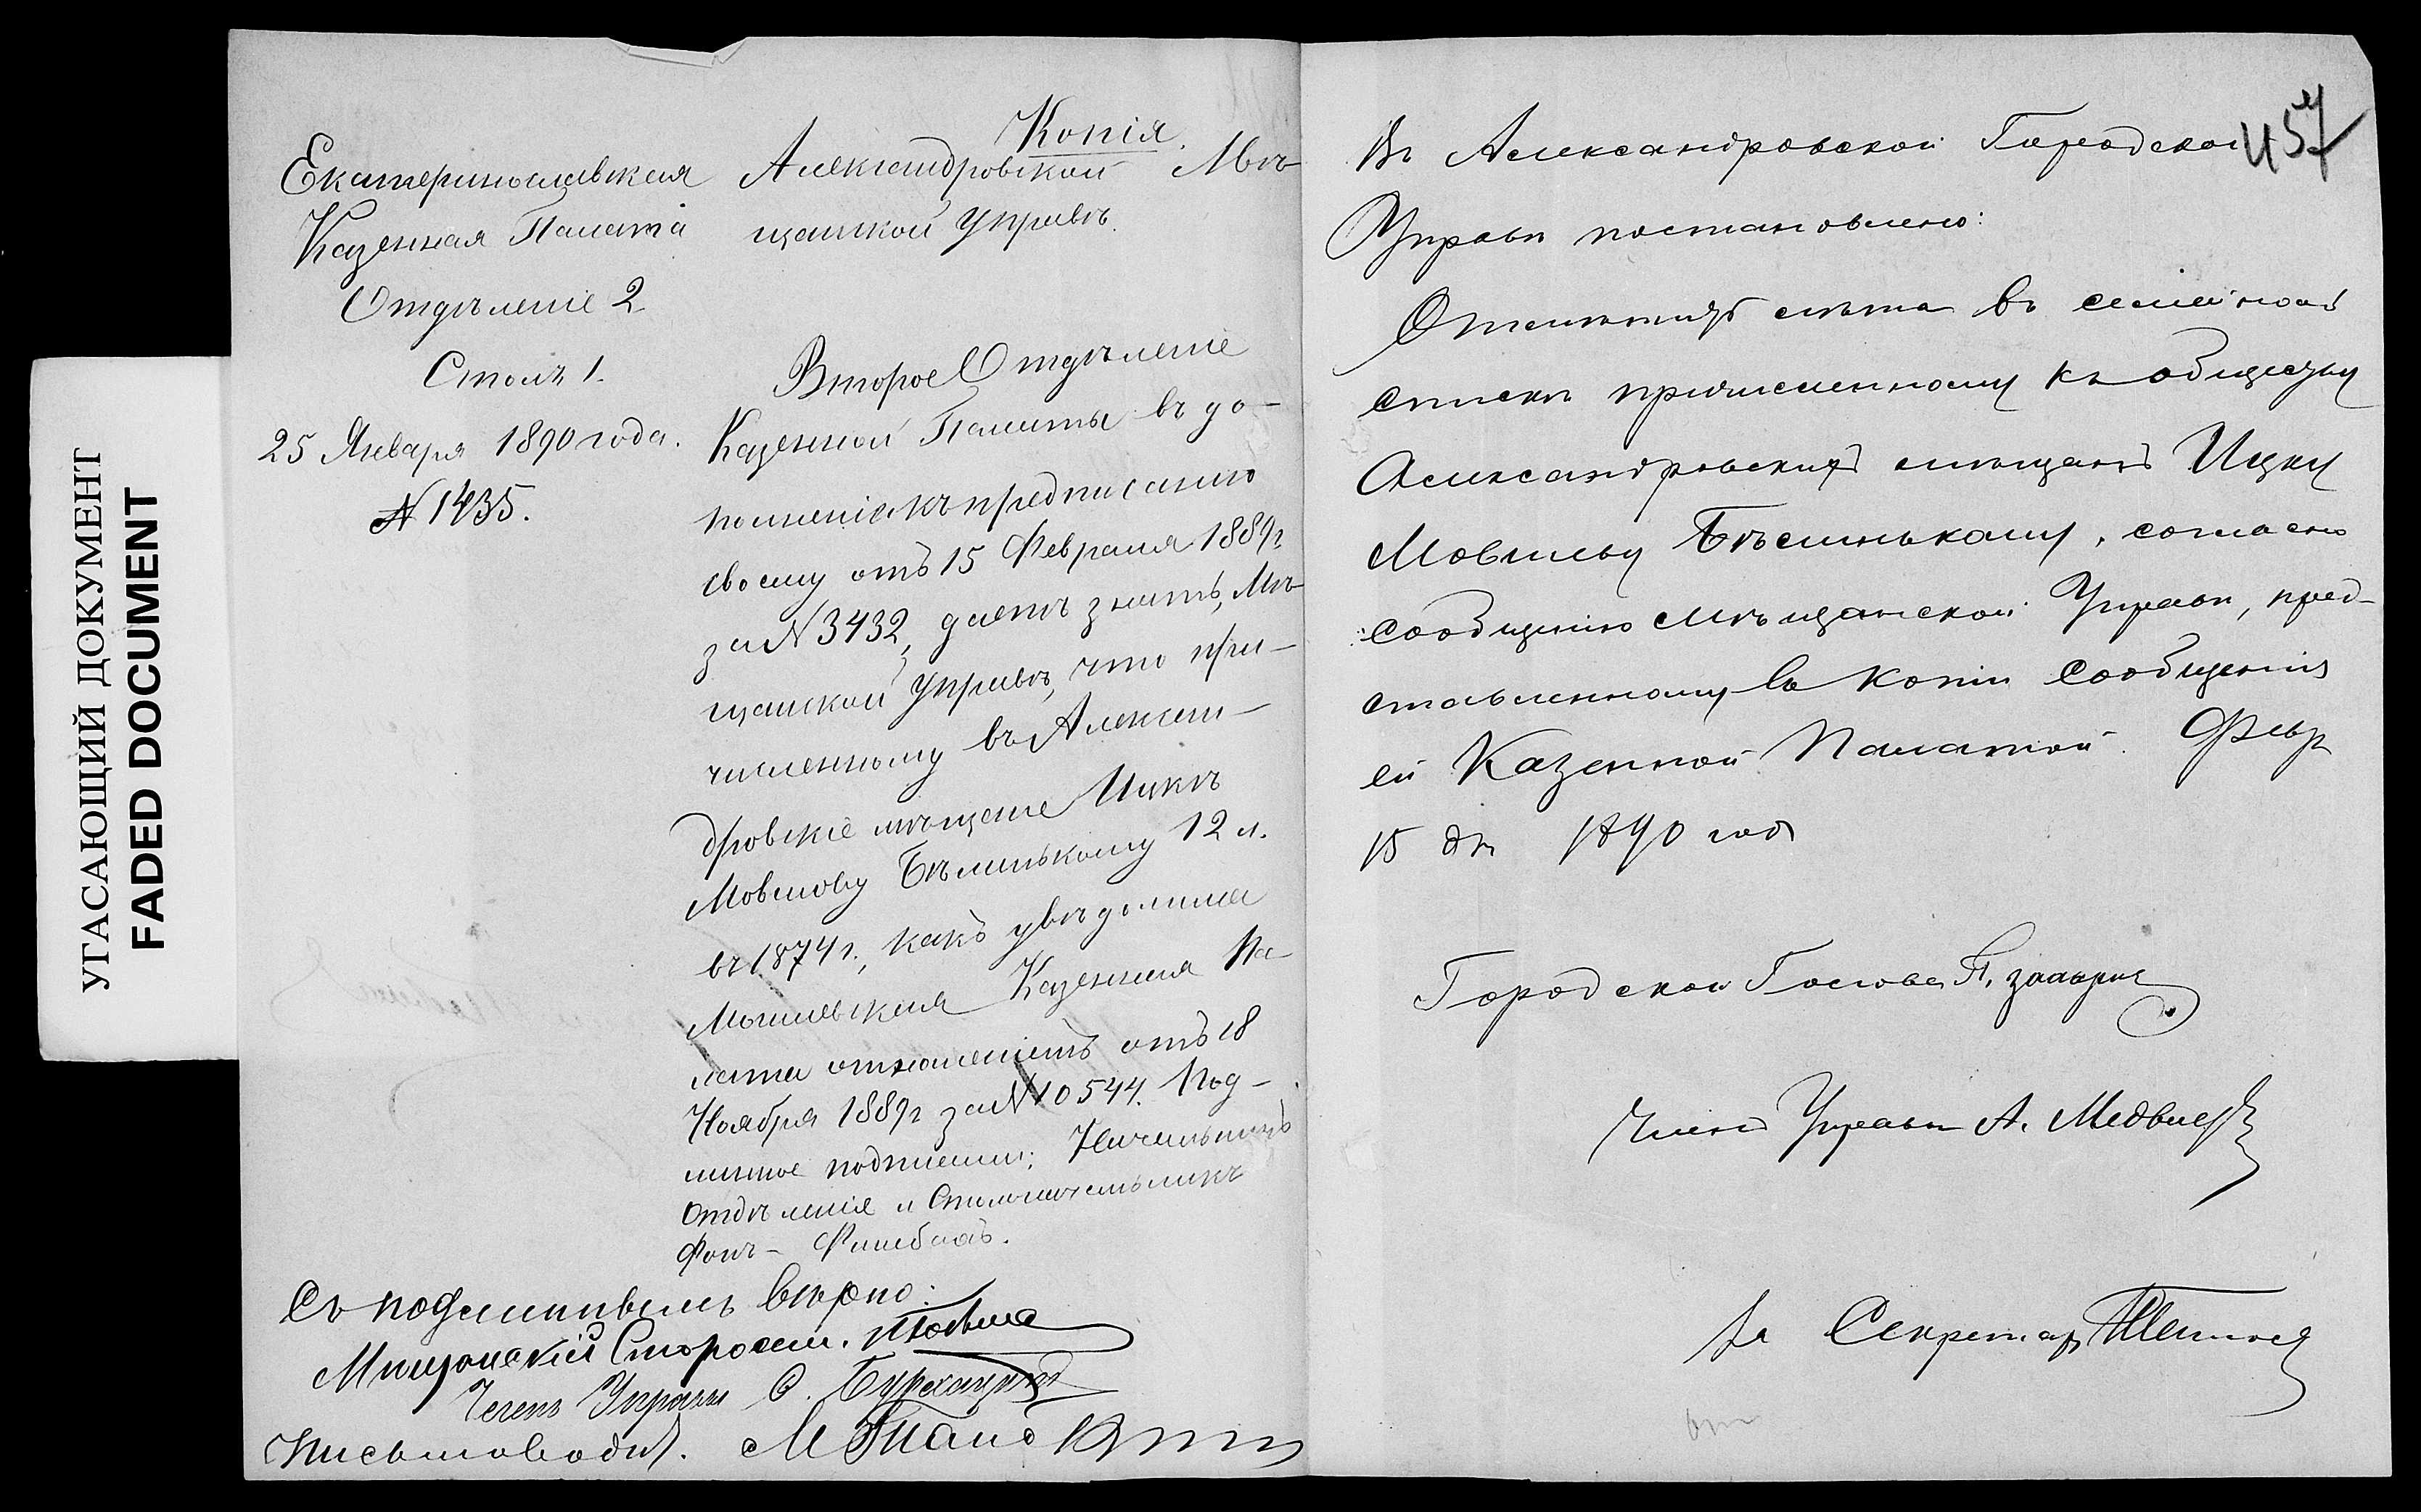 УГАСАЮЩИЙ ДОКУМЕНТ
FADED DOCUMENT
Копія.
Екатеринославская
Казенная Палата
Отдѣленіе 2
Столъ 1.
25 Января 1890 года.
№ 1435.
Александровской Мѣ-
щанской Управѣ.
Второе Отдѣленіе
Казенной Палаты въ до-
полненіе къ предписанію
своему отъ 15 Февраля 1889 г.
за № 3432, даетъ знать, Мѣ-
щанской Управѣ, что при-
численному въ Алексан-
дровскіе мѣщане Ицкѣ
Мовшову Бѣлинькому 12 л.
въ 1874 г., какъ увѣдомила
Могилевская Казенная Па-
лата отношеніемъ отъ 18
Ноября 1889 г. за № 10544. Под-
линное подписали: Начальникъ
Отдѣленія и Столоначальникъ
Фонъ-
Съ подлиннымъ вѣрно:
Мѣщанскій Старос
Членъ Управы С.
Письмовод. М
457
Въ Александровской Городской
Управѣ постановлено:
въ семейномъ
спискѣ причисленному къ обществу
Александровскихъ мѣщанъ Ицку
Мовшову Бѣлинькому, согласно
сообщенію Мѣщанской Управы, пред-
ставленному въ копіи сообщенія
ей Казенной Палатой. Февр
15 дн 1890 год
Городской Голова
Членъ Управы А. Медвед
За Секретар